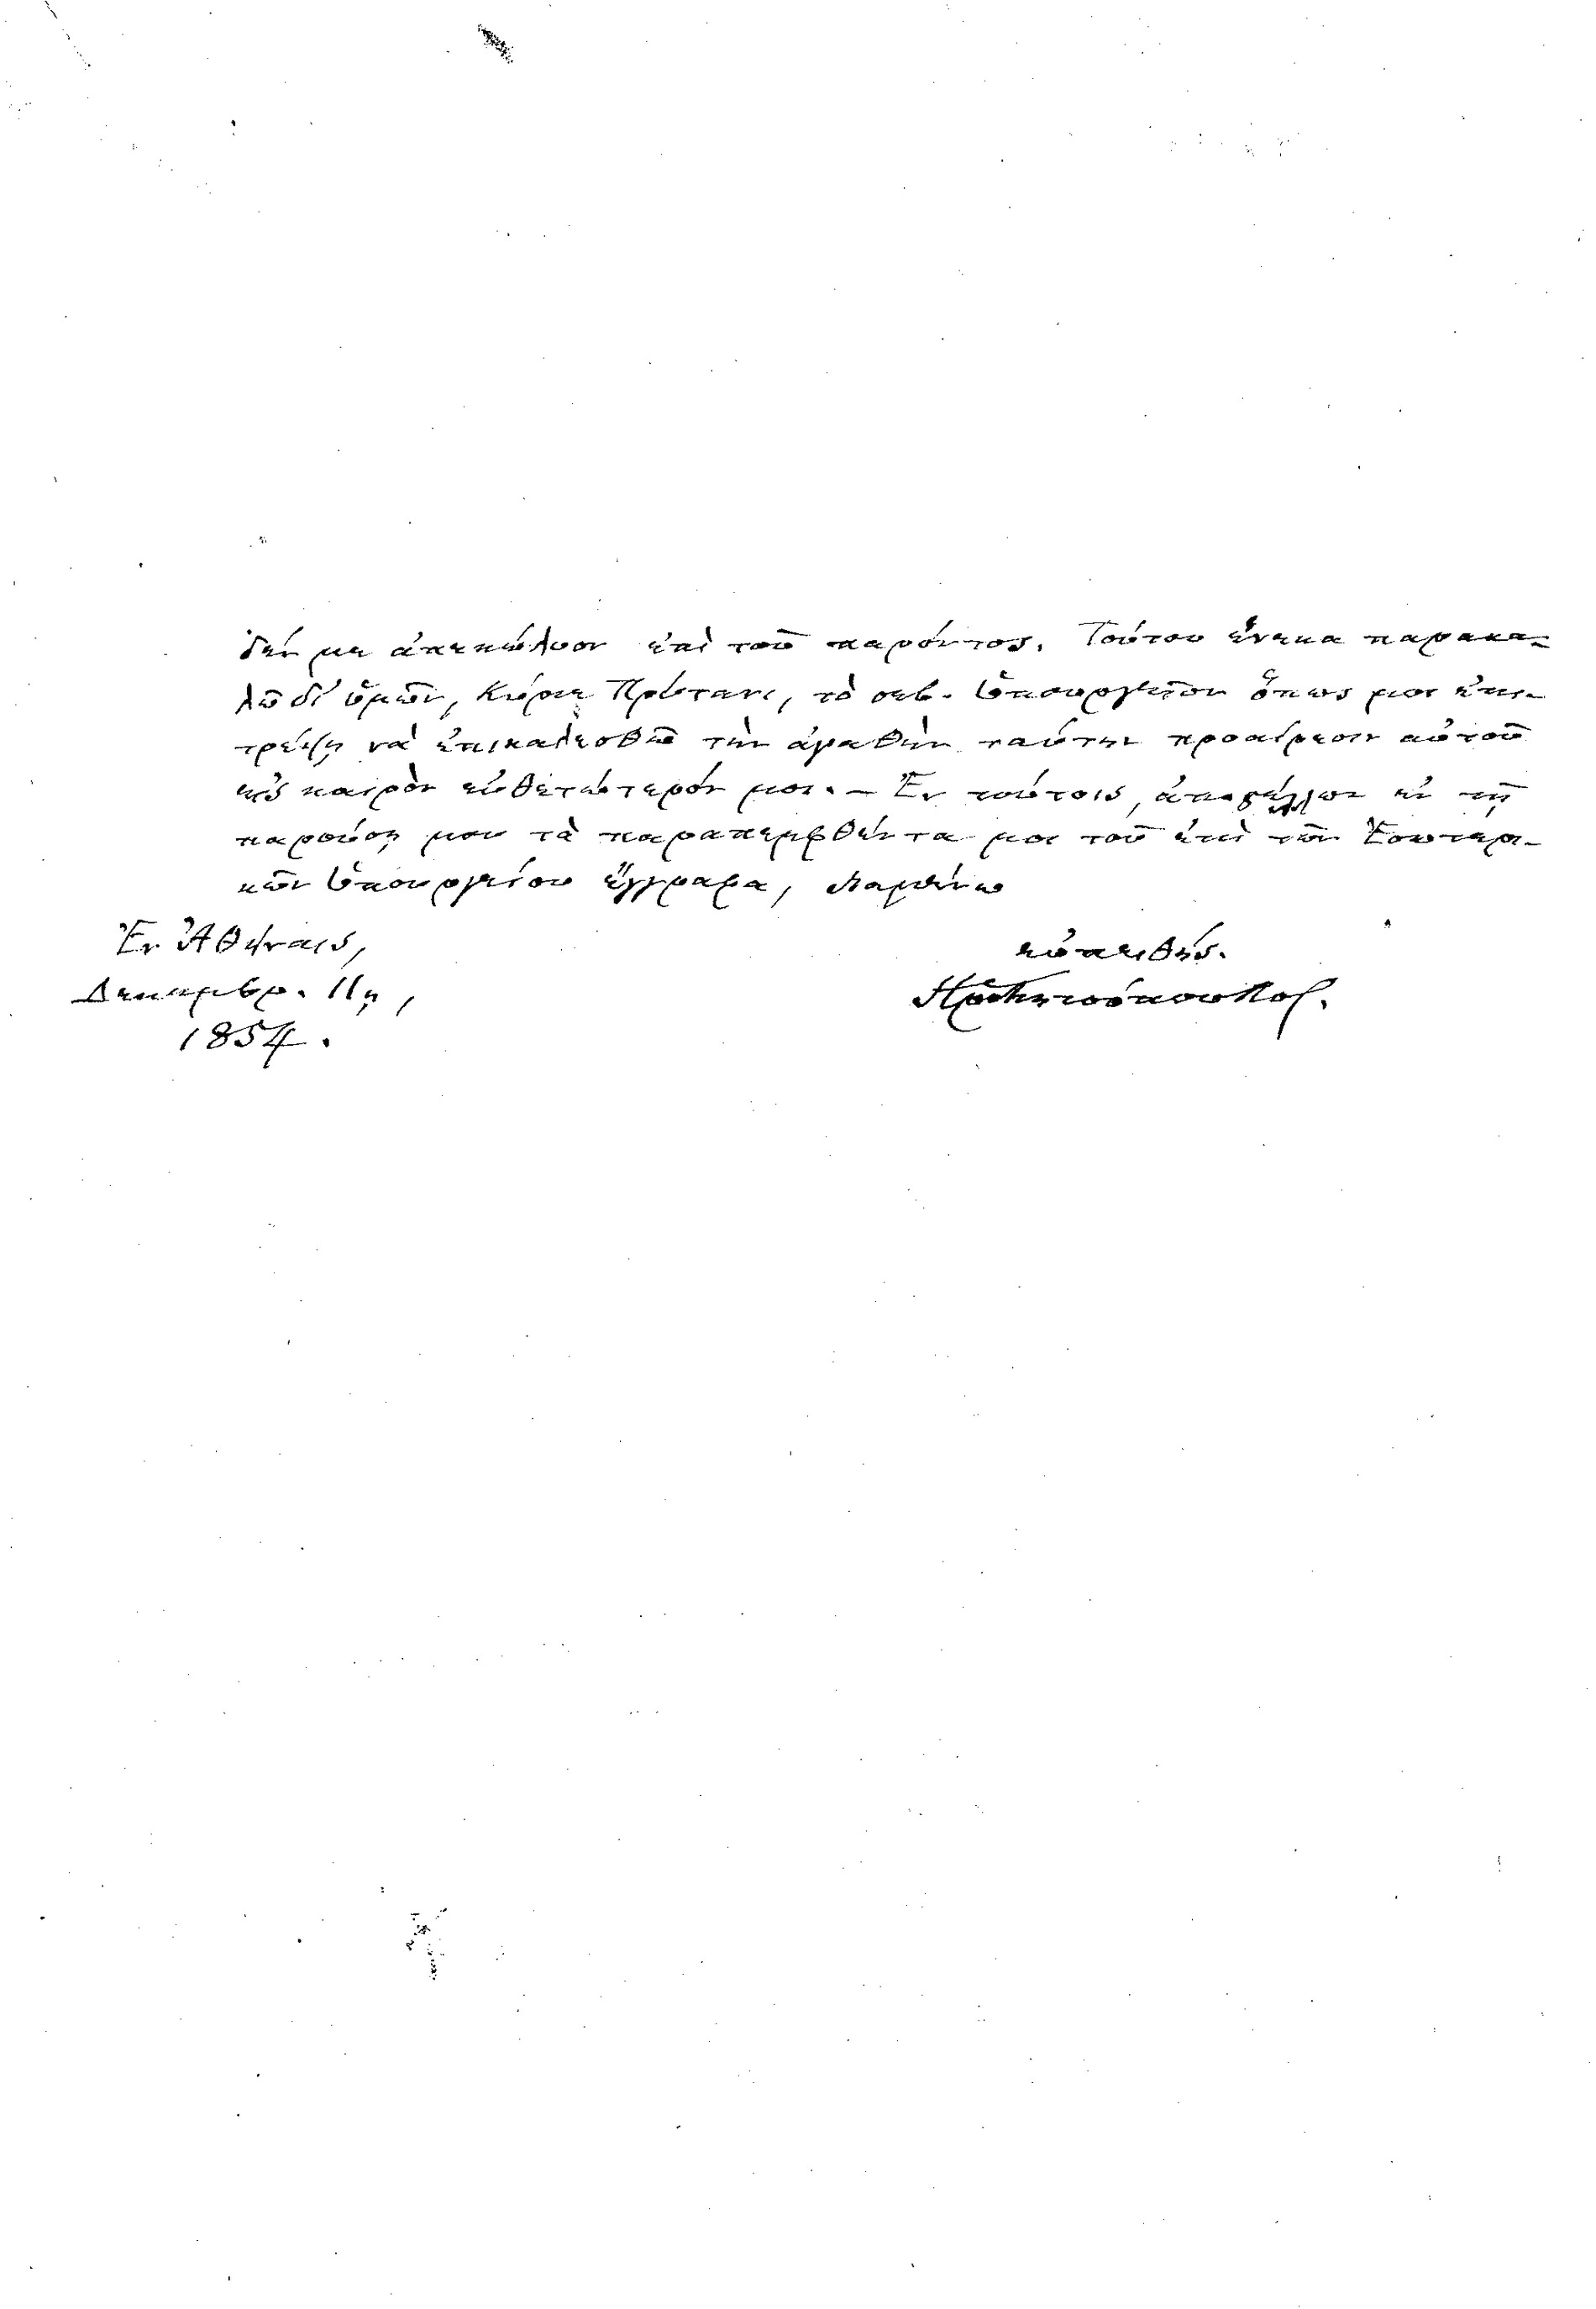 δέν με ἀπεκώλυον ἐπὶ τοῦ παρόντος. Τούτου ἕνεκα παρακα-
λῶ δι' ὑμῶν, Κύριε Πρύτανι, τὸ σεβ. Ὑπουργεῖον ὅπως μοι ἐπι-
τρέψῃ νὰ ἐπικαλεσθῶ τὴν ἀγαθὴν ταύτην προαίρεσιν αὐτοῦ
εἰς καιρὸν εὐθετώτερόν μοι. – Ἐν τούτοις, ἐν τῇ
παρούσῃ μου τὰ παραπεμφθέντα μοι τοῦ ἐπὶ τῶν Ἐσωτερι-
κῶν Ὑπουργείου ἔγγραφα,
Ἐν Ἀθήναις,
Δεκεμβρ. 11ῃ,
1854.
εὐπειθής.